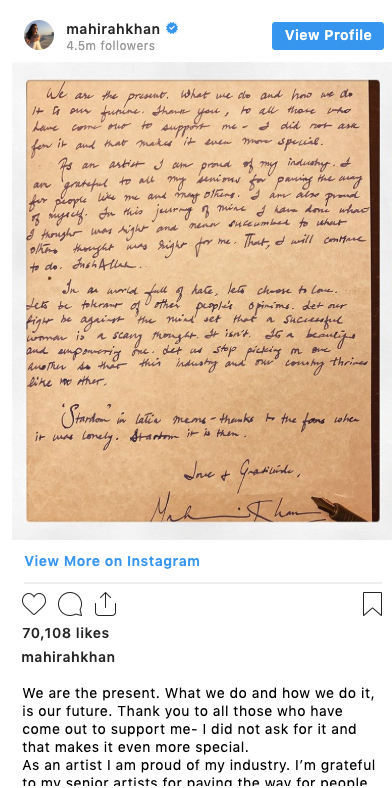 mahirahkhan
4.5m followers
View Profile
We are the present. What we do and how we do
it is our future. Thank you, to all those who
have come out to support me - I did not ask
for it and that makes it even more special.
As an artist I am proud of my industry. I
am grateful to all my seniors for paving the way
for people like me and many others. I am also proud
of myself. In this journey of mine I have done what
I thought was right and never succumbed to what
others thought was right for me. That, I will continue
to do. InshAllah.
In a world full of hate, lets choose to love.
Lets be tolerant of other people's opinions. Let our
fight be against the mind set that a successful
woman is a scary thought. It isn't. It's a beautiful
and empowering one. Let us stop picking on one
another so that this industry and our country thrives
like no other.
'Stardom' in latin means - thanks to the fans when
it was lonely. Stardom it is then.
Love & Gratitude,
Mahira Khan
View More on Instagram
70,108 likes
mahirahkhan
We are the present. What we do and how we do it,
is our future. Thank you to all those who have
come out to support me- I did not ask for it and
that makes it even more special.
As an artist I am proud of my industry. I'm grateful
to my senior artists for paving the way for people